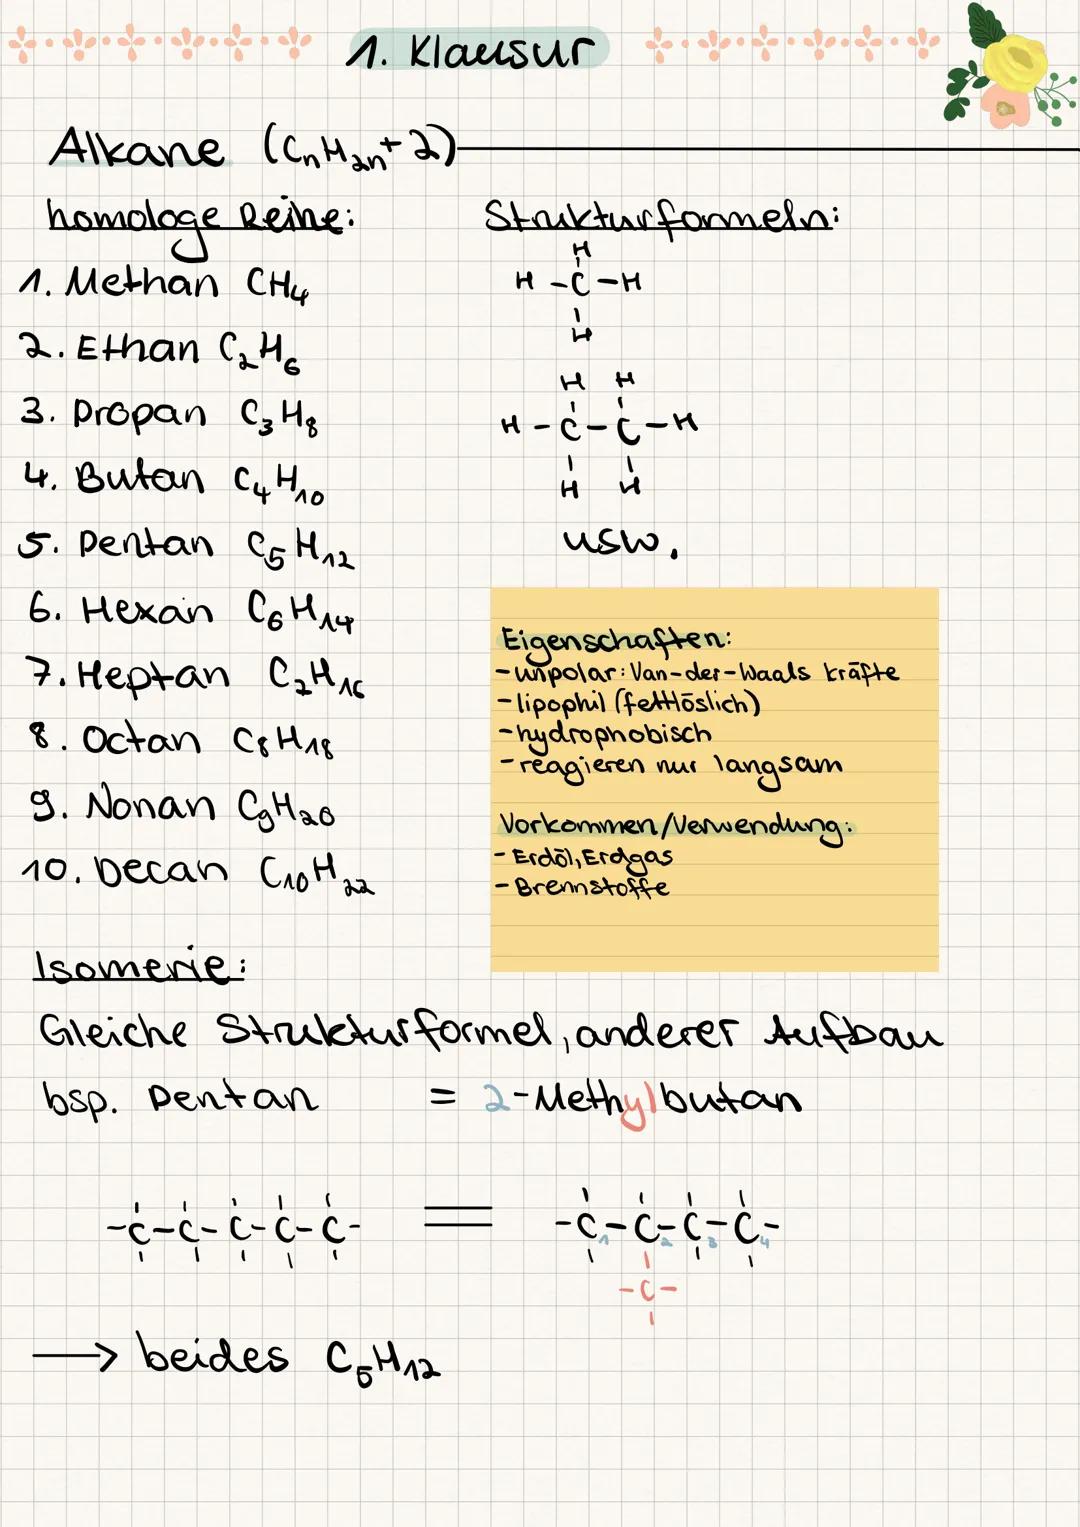 1. Klausur
Alkane (CnH2n+2)
homologe Reihe:
1. Methan CH4
2. Ethan C2H6
3. Propan C3H8
4. Butan C4H10
5. Pentan C5H12
6. Hexan C6H14
7. Heptan C7H16
8. Octan C8H18
9. Nonan C9H20
10. Decan C10H22
Strukturformeln:
H
H-C-H
H
H H
H-C-C-H
H H
usw.
Eigenschaften:
-unpolar: Van-der-Waals kräfte
-lipophil (fettlöslich)
-hydrophobisch
-reagieren nur langsam
Vorkommen/Verwendung:
- Erdöl, Erdgas
- Brennstoffe
Isomerie:
Gleiche Strukturformel, anderer Aufbau
bsp. Pentan = 2-Methylbutan
-C-C-C-C-C- = -C1-C2-C3-C4-
-C-
→ beides C5H12